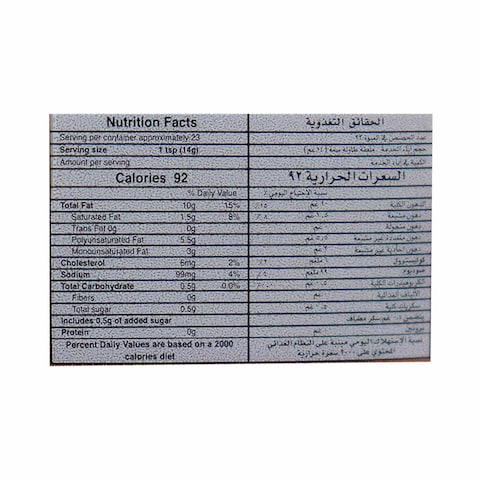 Nutrition Facts
Serving per container approximately 23
Serving size 1 tsp (14g)
Amount per serving
Calories 92
% Daily Value
Total Fat 10g 15%
Saturated Fat 1.5g 8%
Trans Fat 0g 0g
Polyunsaturated Fat 5.5g
Monounsaturated Fat 3g
Cholesterol 6mg 2%
Sodium 99mg 4%
Total Carbohydrate 0.5g 0.0%
Fibers 0g
Total sugar 0.5g
Includes 0.5g of added sugar
Protein 0g
Percent Daily Values are based on a 2000
calories diet
الحقائق التغذوية
عدد الحصص في العبوة ٢٣
الكمية في أداء الخدمة
السعرات الحرارية ٩٢
نسبة الاحتياج اليومي ٪
الدهون الكلية ١٠ غم ١٥٪
دهون مشبعة ١.٥ غم ٨٪
دهون متحولة
دهون متعددة غير مشبعة ٥.٥ غم
دهون أحادية غير مشبعة ٣ غم
كوليسترول ٦ ملغم
صوديوم ٩٩ ملغم
الكربوهيدرات الكلية
الألياف الغذائية
سكريات كلية ٠.٥ غم
سكر مضاف
بروتين
نسبة الاستهلاك اليومي مبنية على النظام الغذائي
المحتوي على ٢٠٠٠ سعرة حرارية